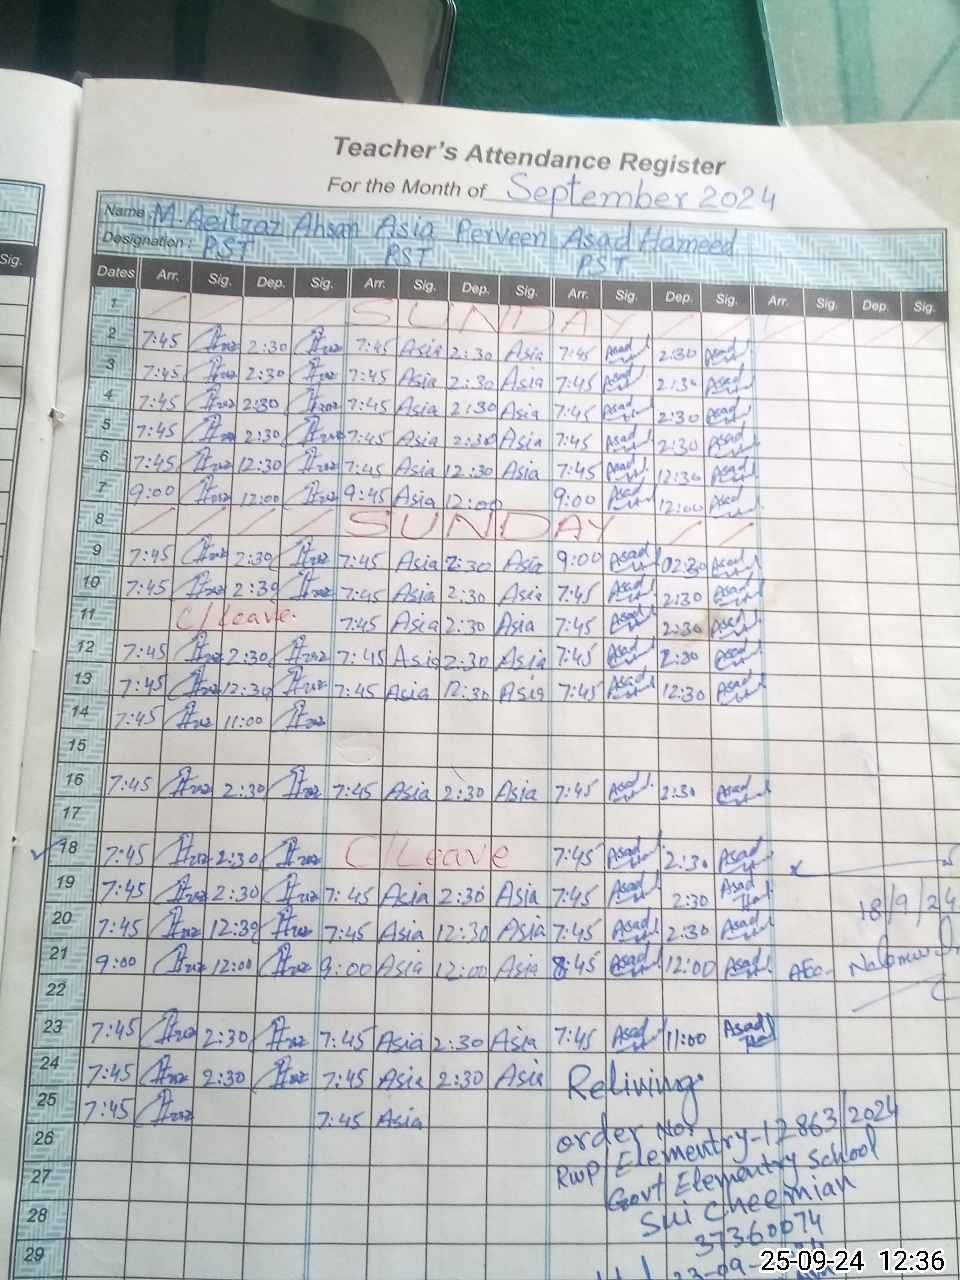 Teacher's Attendance Register
For the Month of September 2024
Name M. Aeitzaz Ahsan Asia Perveen Asad Hameed
Designation: PST PST PST
Sig.
Dates Arr. Sig. Dep. Sig. Arr. Sig. Dep. Sig. Arr. Sig. Dep. Sig. Arr. Sig. Dep. Sig.
1 SUNDAY
2 7:45 2:30 7:45 Asia 2:30 Asia 7:45 Asad 2:30 Asad
3 7:45 2:30 7:45 Asia 2:30 Asia 7:45 Asad 2:30 Asad
4 7:45 2:30 7:45 Asia 2:30 Asia 7:45 Asad 2:30 Asad
5 7:45 2:30 7:45 Asia 2:30 Asia 7:45 Asad 2:30 Asad
6 7:45 12:30 7:45 Asia 12:30 Asia 7:45 Asad 12:30 Asad
7 9:00 12:00 9:45 Asia 12:00 9:00 Asad 12:00 Asad
8 SUNDAY
9 7:45 2:30 7:45 Asia 2:30 Asia 9:00 Asad 02:30 Asad
10 7:45 2:30 7:45 Asia 2:30 Asia 7:45 Asad 2:30 Asad
11 C/Leave. 7:45 Asia 2:30 Asia 7:45 Asad 2:30 Asad
12 7:45 2:30 7:45 Asia 2:30 Asia 7:45 Asad 2:30 Asad
13 7:45 12:30 7:45 Asia 12:30 Asia 7:45 Asad 12:30 Asad
14 7:45 11:00
15
16 7:45 2:30 7:45 Asia 2:30 Asia 7:45 Asad 2:30 Asad
17
18 7:45 2:30 C/Leave 7:45 Asad 2:30 Asad
19 7:45 2:30 7:45 Asia 2:30 Asia 7:45 Asad 2:30 Asad
18/9/24
20 7:45 12:30 7:45 Asia 12:30 Asia 7:45 Asad 2:30 Asad
21 9:00 12:00 9:00 Asia 12:00 Asia 8:45 Asad 12:00 Asad AEO-
22
23 7:45 2:30 7:45 Asia 2:30 Asia 7:45 Asad 11:00 Asad
24 7:45 2:30 7:45 Asia 2:30 Asia Reliving
25 7:45 7:45 Asia
order No:
26 Rwp/Elementry-12863/2024
27 Govt Elementry School
28 Cheemian
37360074
29 23-09-
25-09-24 12:36